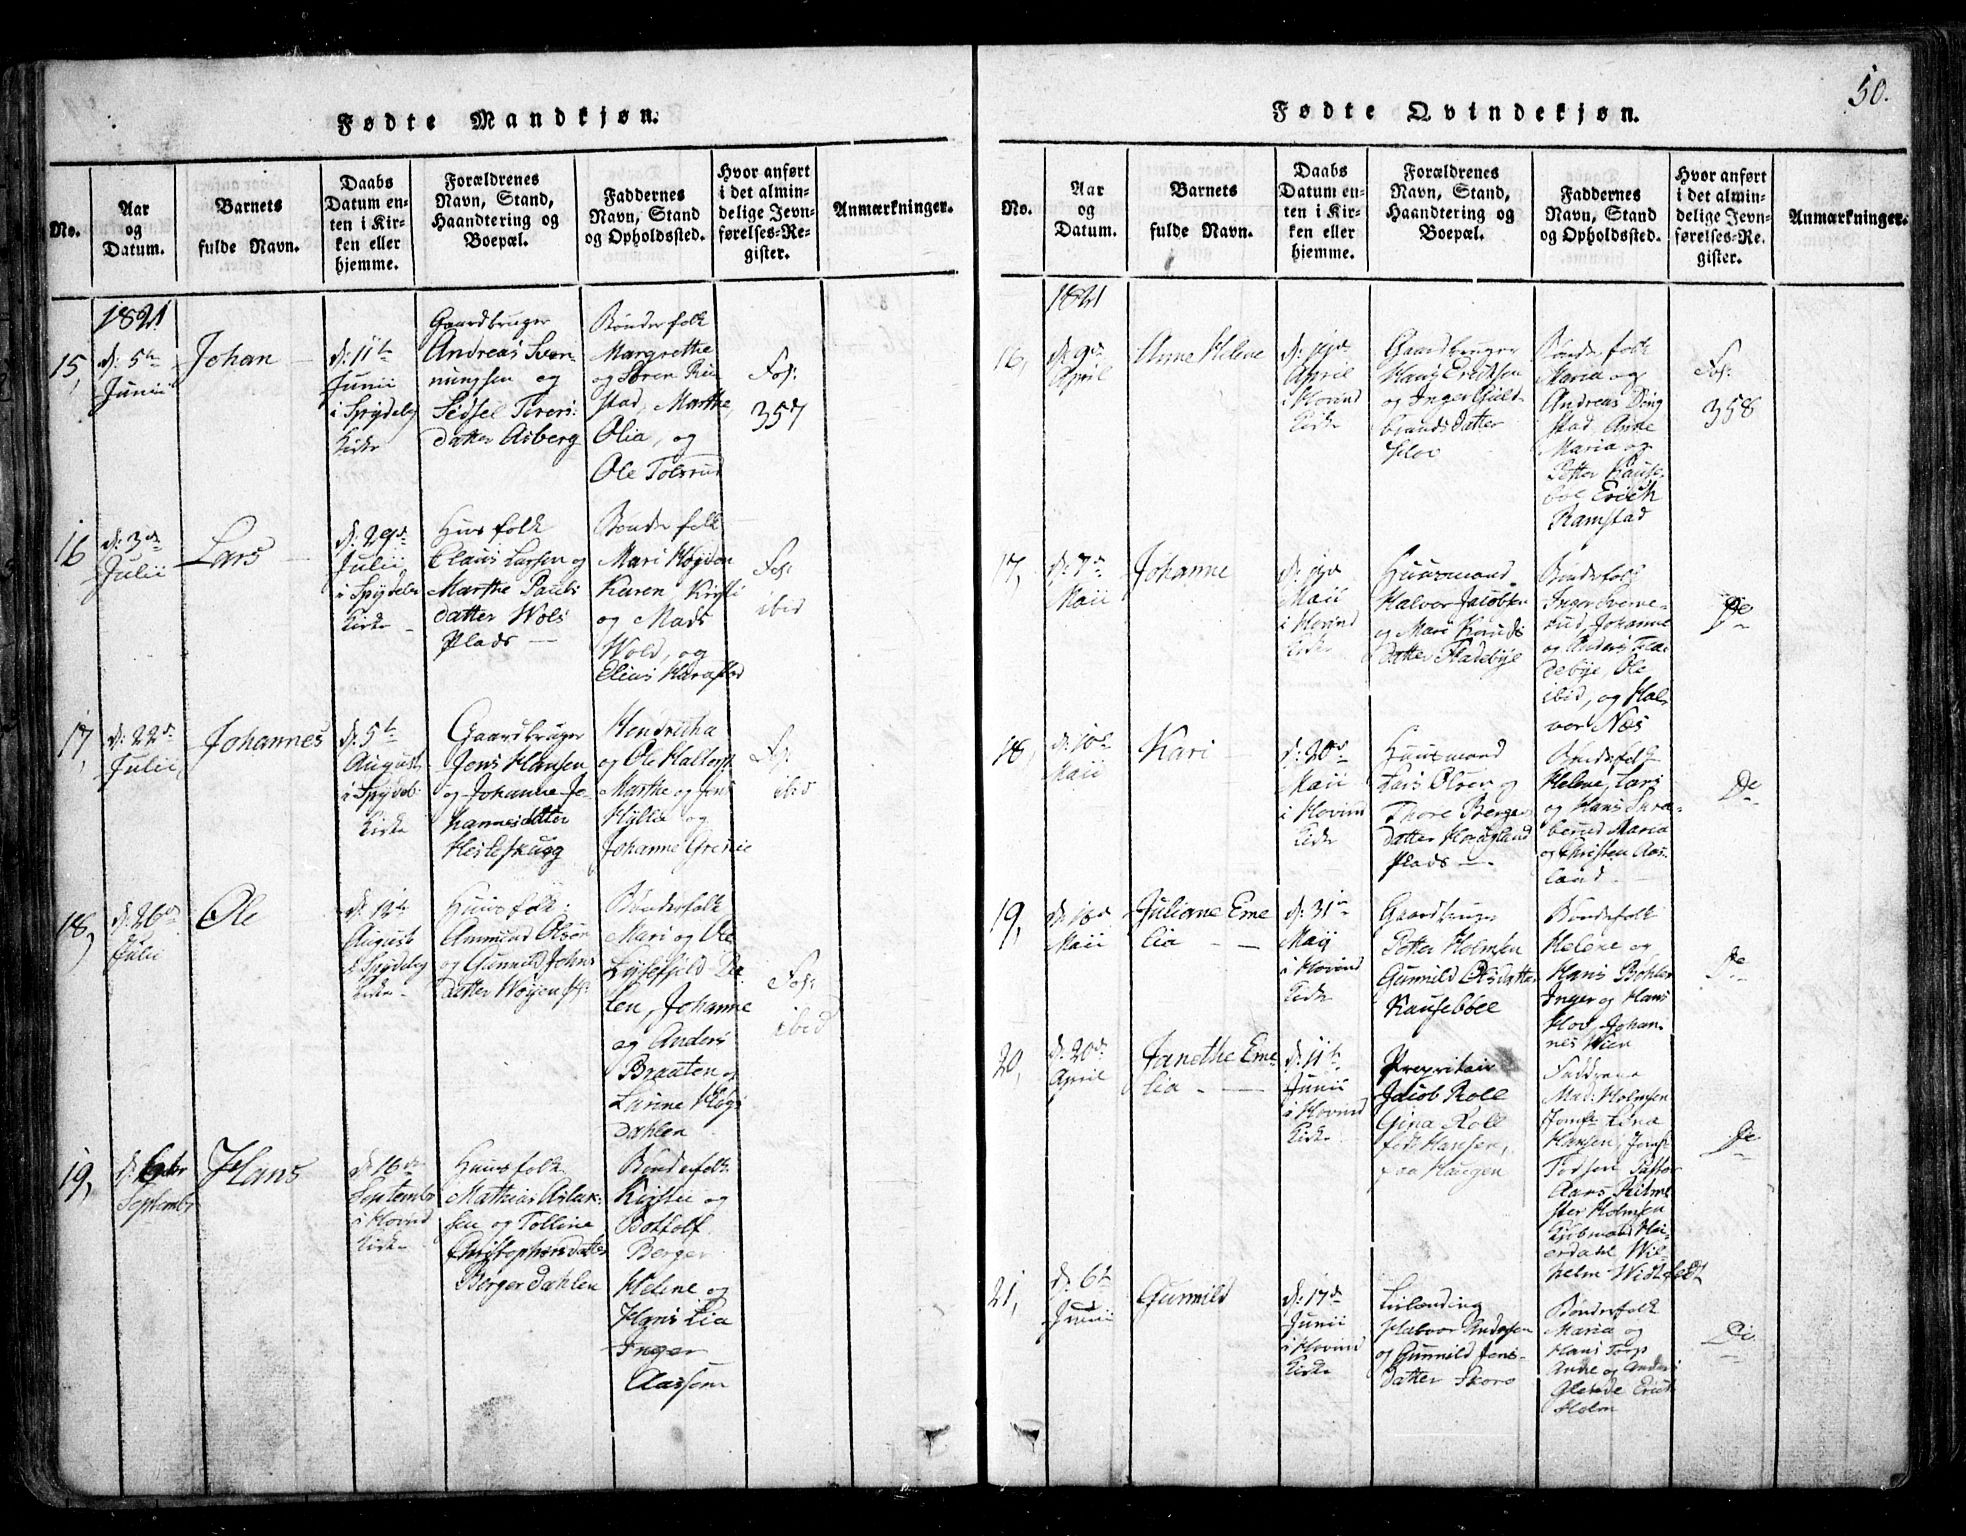 50.
Fødte Mandkjøn.
No.
Aar
og
Datum.
Barnets
fulde Navn.
Daabs
Datum en-
ten i Kir-
ken eller
hjemme.
Forældrenes
Navn, Stand,
Haandtering og
Boepæl.
Faddernes
Navn, Stand
og Opholdssted.
Hvor anført
i det almin-
delige Jevn-
førelses-Re-
gister.
Anmærkninger.
1821
15,
d: 5te
Junii
Johan
d: 11te
Junii
i Spydeb
Kirke
Gaardbruger
Andreas Sven-
ningsen og
Sidsel
datter Asberg
Bønderfolk
Margrethe
og Søren
stad, Marthe,
Olia, og
Ole Tolsrud
Fol:
357
16
d: 3de
Julii
Lars
d: 29de
Julii
i Spydeb
Kirke
Huusfolk
Claus Larsen og
Marthe Pauls
datter Wols
Plads
Bønderfolk
Mari
Karen, Kirsti
og Mads
Wold, og
Elias
Fol:
ibid
17,
d: 22de
Julii
Johannes
d: 5te
August
i Spydeb
Kirke
Gaardbruger
Jens Hansen
og Johanne Jo-
hannesdatter
Hesleskoug
Hendricha
og Ole
Marthe og Jens
Hyllie og
Johanne
Fol:
ibid
18,
d: 26de
Julii
Ole
d: 12te
August
i Spydeberg
Kirke
Huusfolk:
Ammund Olsen
og Gunnild Johns
datter Woyen
Bønderfolk
Mari og Ole
Da-
len, Johanne
og Anders
Braaten og
Larine
Dahlen
Fol:
ibid
19,
September
Hans
d: 16de
Septembr
i Hovind
Kirke
Huusfolk
Mathias Aslak-
sen og Tolline
Christophersdatter
Berger Dahlen
Bønderfolk
Kistie og
Bottolf
Berger
Helene og
Hans Lia
Inger
Aassem
Fødte Qvindekjøn.
No.
Aar
og
Datum.
Barnets
fulde Navn.
Daabs
Datum en-
ten i Kir-
ken eller
hjemme.
Forældrenes
Navn, Stand,
Haandtering og
Boepæl.
Faddernes
Navn, Stand
og Opholdssted.
Hvor anført
i det almin-
delige Jevn-
førelses-Re-
gister.
Anmærkninger.
1821
16,
d: 9de
April
Anne Helene
April
i Hovind
Kirke
Gaardbruger
Hans Ericksen
og Inger Guld-
brandsdatter
Hov
Bønderfolk
Maria og
Andreas Ding
stad, Anne
Maria og
Petter Kause-
böl Erich
Ramstad
Fol:
358
17,
d: 7de
Maii
Johanne
Maii
i Hovind
Kirke
Huusmand
Halvor Jacobsen
og Mari Knuds
datter Fladebye
Bønderfolk
Inger
rud, Johanne
og Anders Fla-
debye, Ole
ibid, og Hal-
vor Næs
De
18,
Maii
Kari
d: 20de
Maii
i Hovind
Kirke
Huusmand
Lars Olsen og
Thore Berger
datter Hougland
Plads
Bønderfolk
Helene, Lars
og Hans
berud Maria
og Christen Aas-
land
De
19,
d: 16de
Maii
Juliane Eme
lia
d: 31te
Maii
i Hovind
Kirke
Gaardbruger
Petter Holmsen
Gunnild Olsdatter
Kausebböl
Bønderfolk
Helene og
Hans Böhler
Inger og Hans
Hov, Johan-
nes Wien
De
20,
d: 20de
April
Janethe Eme
lia
d: 11te
Junii
i Hovind
Kirke
Propritair
Jacob Roll
Gina Roll
født Hansen,
paa Haugen
Fadderne
Mad: Holmsen
Jomfr Lena
Hansen, Jomf
Pastor
Aars Ritme
ster Holmsen
Kiøbmand Hei-
erdahl Wil-
helm Widtfeldt
De
21,
d: 6te
Junii
Gunnild
d: 17de
Junii
i Hovind
Kirke
Leilænding
Halvor Andersen
og Gunnild Jens-
datter Skore
Bønderfolk
Maria og
Hans Torp
Anne og Anders
Erich
Holm
De